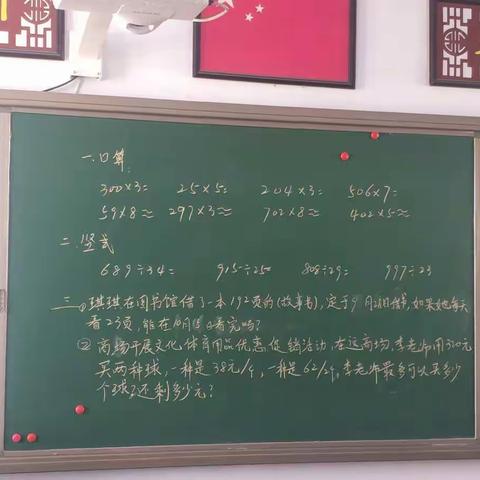 一.口算:
300×3= 25×5= 204×3= 506×7=
59×8≈ 297×3≈ 702×8≈ 402×5≈
二.竖式
689÷34= 915÷25= 808÷29= 997÷23
三.①琪琪在图书馆借了一本192页的《故事书》,定于9月28日借,如果她每天
看23页,能在10月 日看完吗?
②商场开展文化体育用品优惠促销活动,在这商场,李老师用320元
买两种球,一种是38元/个,一种是62/个,李老师最多可以买多少
个球?还剩多少元?